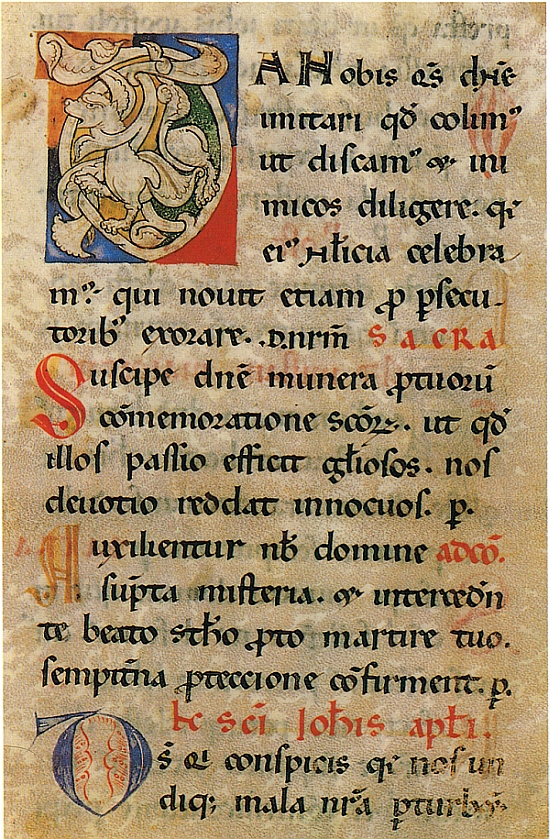 DA Nobis q̄s dn̄e
imitari qd̄ colimꝰ
ut discamꝰ & ini
micos diligere. qꝛ
eiꝰ natalicia celebra
mꝰ. qui nouit etiam ꝓ ꝑsecu-
toribꝰ exorare. dnr̄m SACRA
Suscipe dn̄e munera ꝓ tuoꝝ
cōmemoratione sc̄oꝝ. ut qd̄
illos passio efficit gl̄iosos. nos
deuotio reddat innocuos. p.
Auxilientur nb̄ domine adcō.
supta misteria. & interceden
te beato stho ꝓto martire tuo.
sempitna ꝓteccione cōfirment. p.
sci Iohis apli.
Ds̄ qi conspicis qꝛ nos un
diq; mala nr̄a ꝑturbꝫ